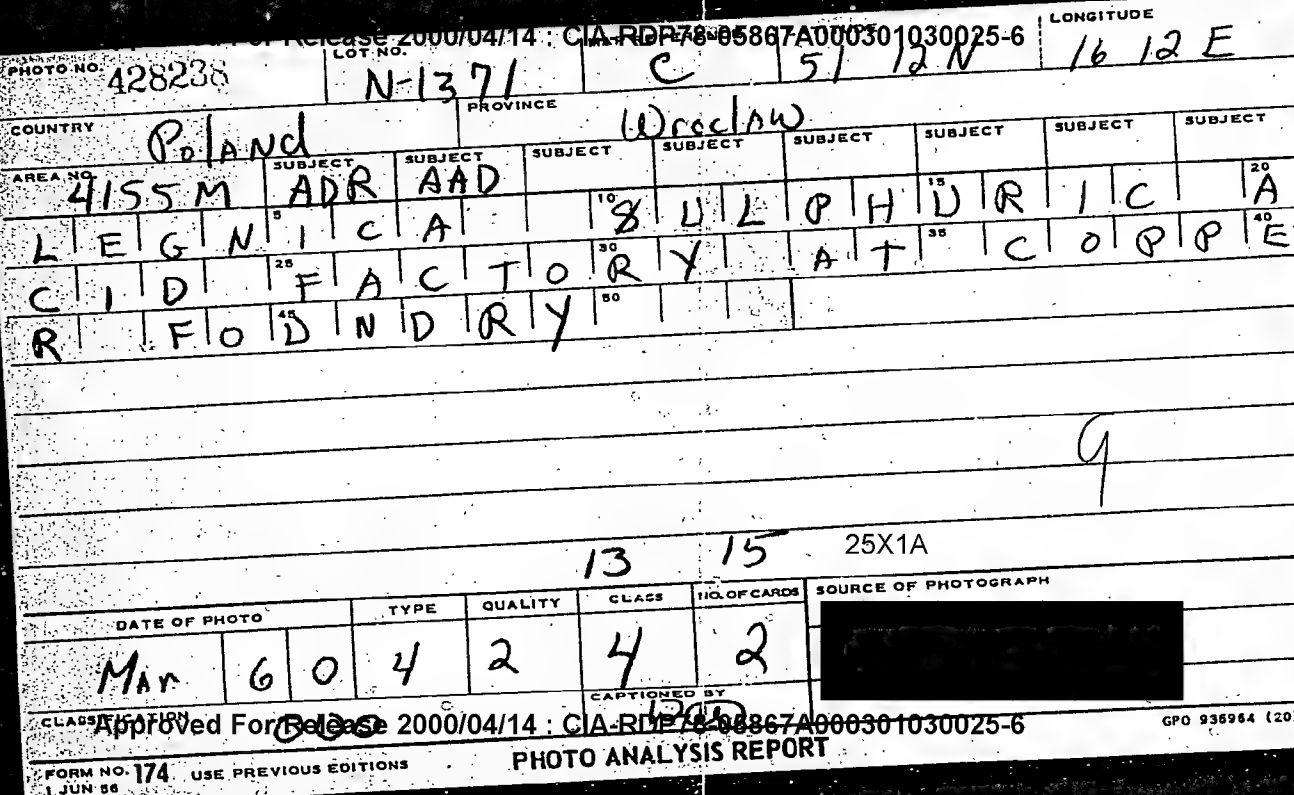 Release 2000/04/14 : CIA-RDP78-05867A000301030025-6
PHOTO NO. 428238 LOT NO. N-1371 C 51 12 N LONGITUDE 16 12 E
COUNTRY Poland PROVINCE Wroclaw
AREA NO. 4155M SUBJECT ADR SUBJECT AAD SUBJECT SUBJECT SUBJECT SUBJECT SUBJECT SUBJECT
LEGNICA SULPHURIC A
CID FACTORY AT COPPE
R FOUNDRY
9
13 15 25X1A
DATE OF PHOTO TYPE QUALITY CLASS NO. OF CARDS SOURCE OF PHOTOGRAPH
Mar 6 0 4 2 4 2
CAPTIONED BY
CLASSIFICATION Approved For Release 2000/04/14 : CIA-RDP78-05867A000301030025-6 GPO 936964 (20)
FORM NO. 174 USE PREVIOUS EDITIONS PHOTO ANALYSIS REPORT
1 JUN 56